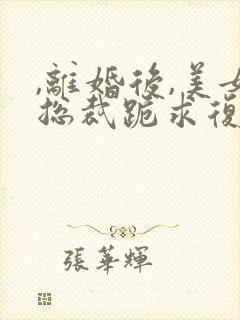 ,離婚後,美女
總裁跪求復
張華輝